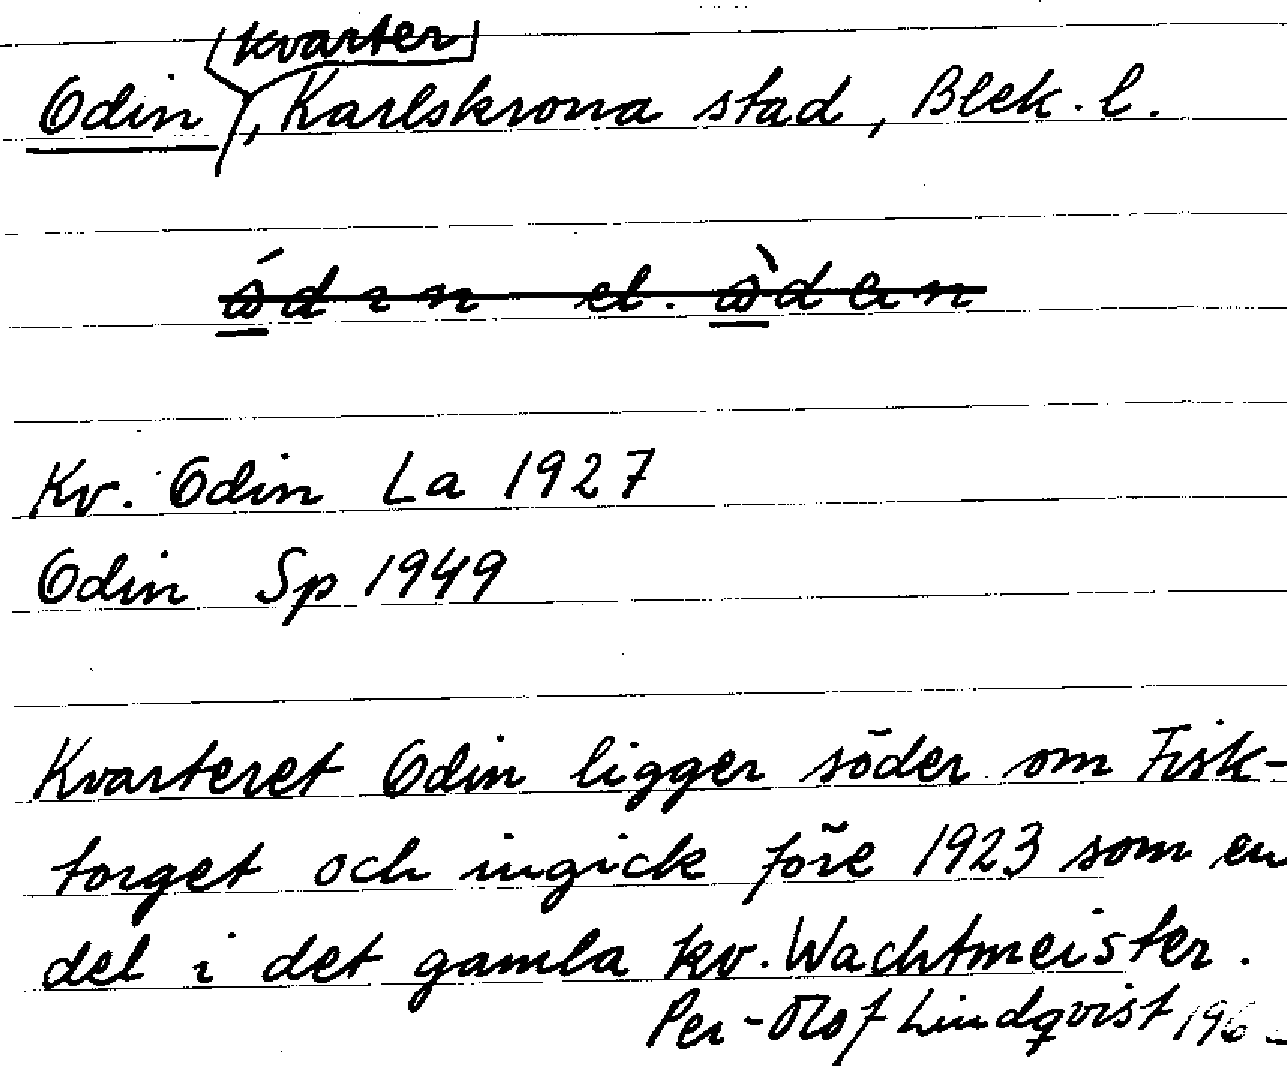 kvarter
Odin, Karlskrona stad, Blek. l.
el.
Kv. Odin La 1927
Odin Sp 1949
Kvarteret Odin ligger söder om Fisk-
torget och ingick före 1923 som en
del i det gamla kv. Wachtmeister.
Per-Olof Lindqvist 196